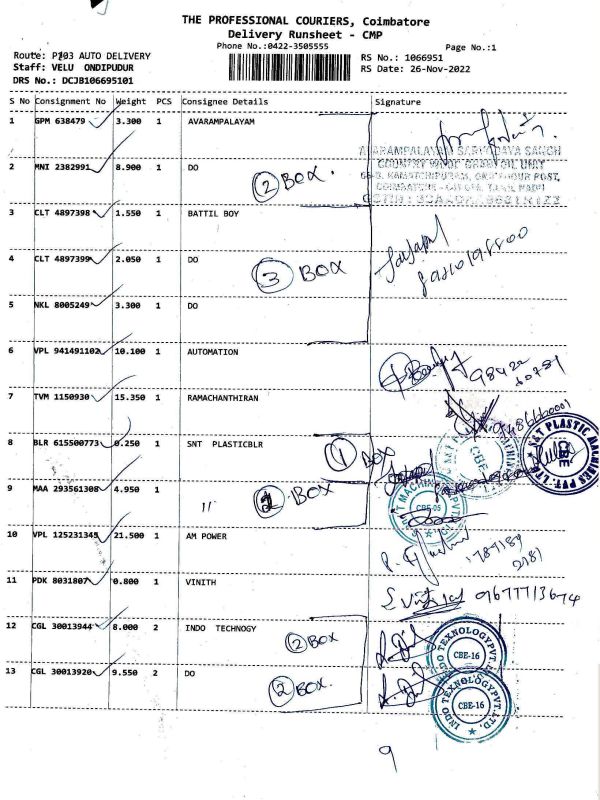 THE PROFESSIONAL COURIERS, Coimbatore
Delivery Runsheet - CMP
Phone No.:0422-3505555
Page No.:1
Route: P203 AUTO DELIVERY
Staff: VELU ONDIPUDUR
DRS No.: DCJB106695101
RS No.: 1066951
RS Date: 26-Nov-2022
S No Consignment No Weight PCS Consignee Details Signature
1 GPM 638479 3.300 1 AVARAMPALAYAM
AVARAMPALAYAM SARVODAYA SANGH
2 MNI 2382991 8.900 1 DO
2 BOX.
3 CLT 4897398 1.550 1 BATTIL BOY
4 CLT 4897399 2.050 1 DO
3 BOX
5 NKL 8005249 3.300 1 DO
6 VPL 941491102 10.100 1 AUTOMATION
98422
7 TVM 1150930 15.350 1 RAMACHANTHIRAN
8 BLR 615500773 0.250 1 SNT PLASTICBLR
1 BOX
S&T PLASTIC MACHINES PVT. LTD.
CBE
9 MAA 293561308 4.950 1 "
BOX
CBE-05
10 VPL 125231345 21.500 1 AM POWER
11 PDK 8031807 0.800 1 VINITH
9677713674
12 CGL 30013944 8.000 2 INDO TECHNOGY
2 BOX
INDO TEXNOLOGY PVT. LTD.
CBE-16
13 CGL 30013920 9.550 2 DO
2 BOX.
INDO TEXNOLOGY PVT. LTD.
CBE-16
9